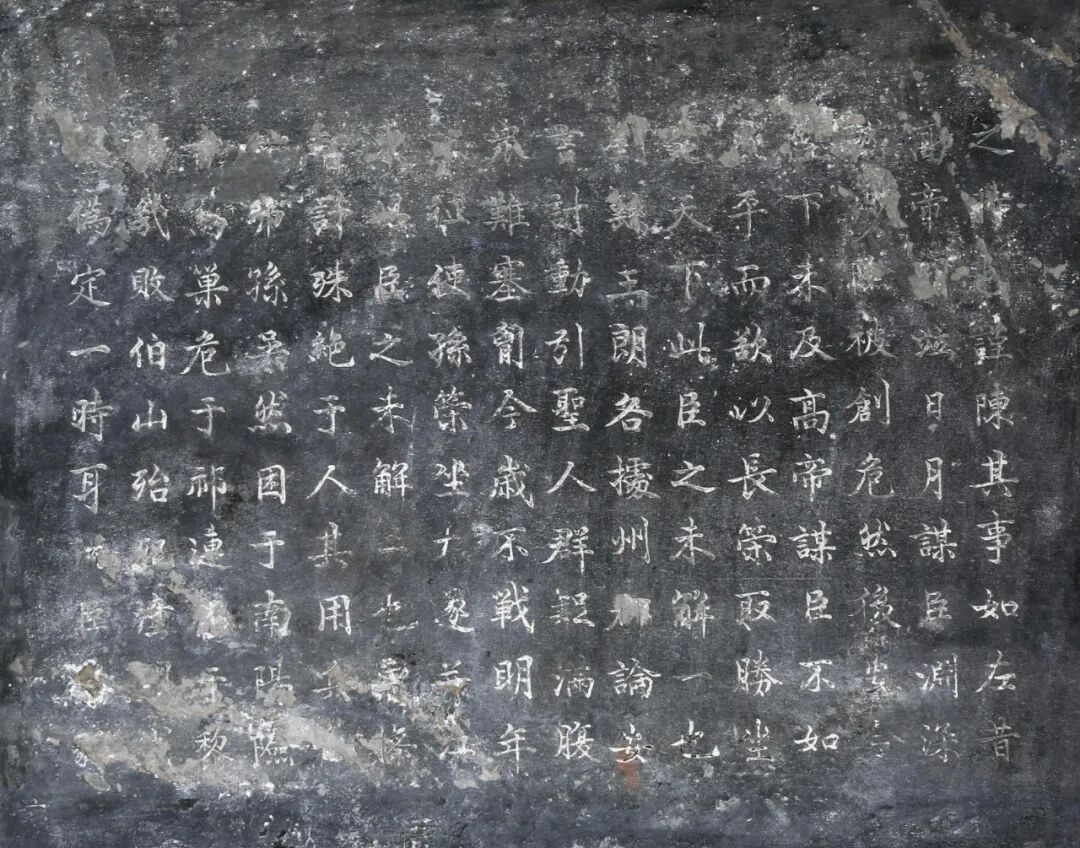 之時謹陳其事如左昔
帝明並日月謀臣淵深
涉險被創危然後安今
下未及高帝謀臣不如
平而欲以長策取勝坐
定天下此臣之未解一也
劉繇王朗各據州郡論安
言討動引聖人群疑滿腹
衆難塞胷今歲不戰明年
征使孫策坐大遂并江
臣之未解二也曹操
智計殊絕于人其用兵
孫吳然困于南陽險
于烏巢危于祁連于黎
幾敗伯山殆死潼
偽定一時耳況臣